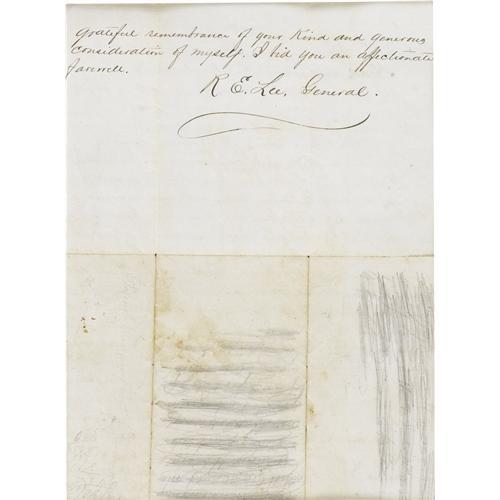 grateful remembrance of your Kind and generous
consideration of myself. I bid you an affectionate
farewell.
R E. Lee, General.